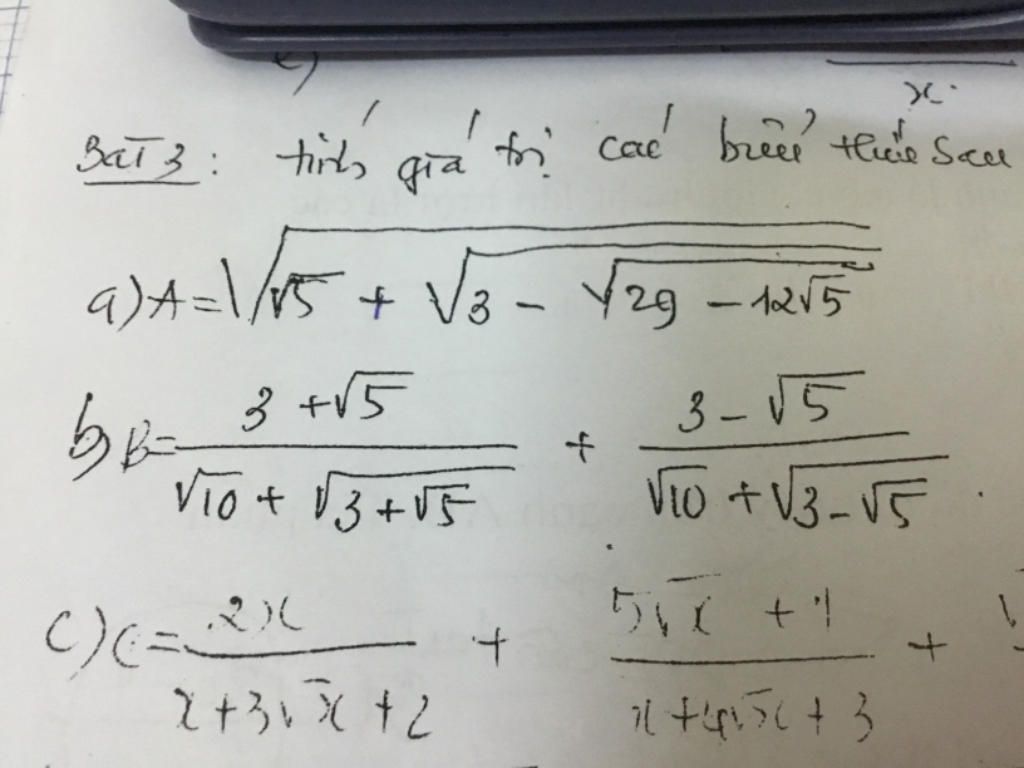 c)
x
Bài 3: tính giá trị các biểu thức sau
a) A = √(√5 + √(3 - √(29 - 12√5)))
b) B = (3 + √5)/(√10 + √(3 + √5)) + (3 - √5)/(√10 + √(3 - √5)).
c) C = 2x/(x + 3√x + 2) + (5√x + 1)/(x + 4√x + 3) +